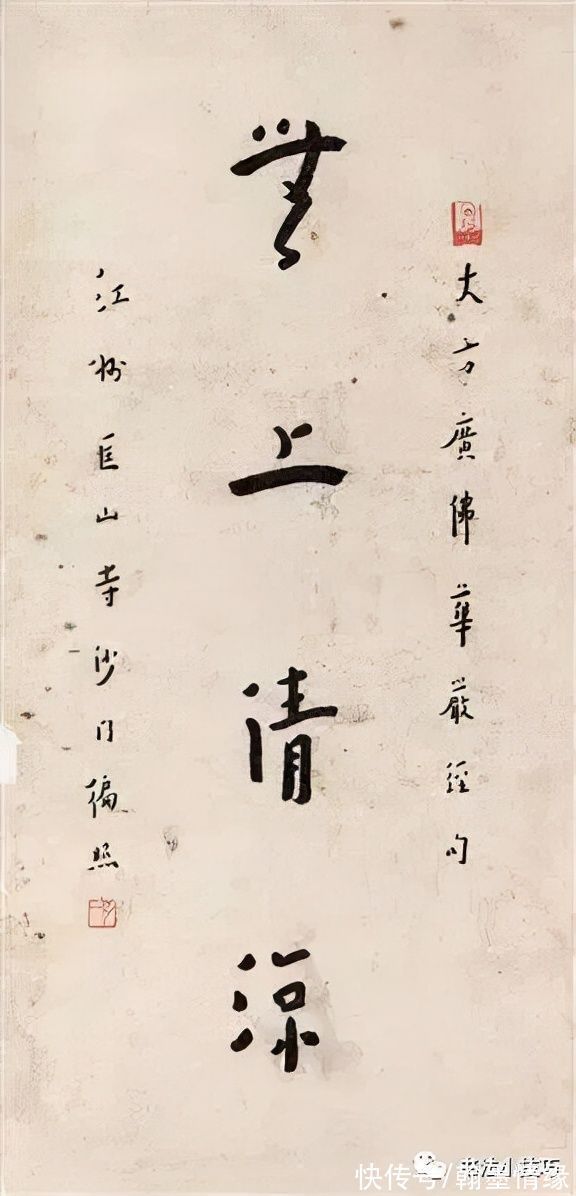 大方廣佛華嚴經句
無上清涼
江州匡山寺沙门徧照
快传号/翰墨情缘